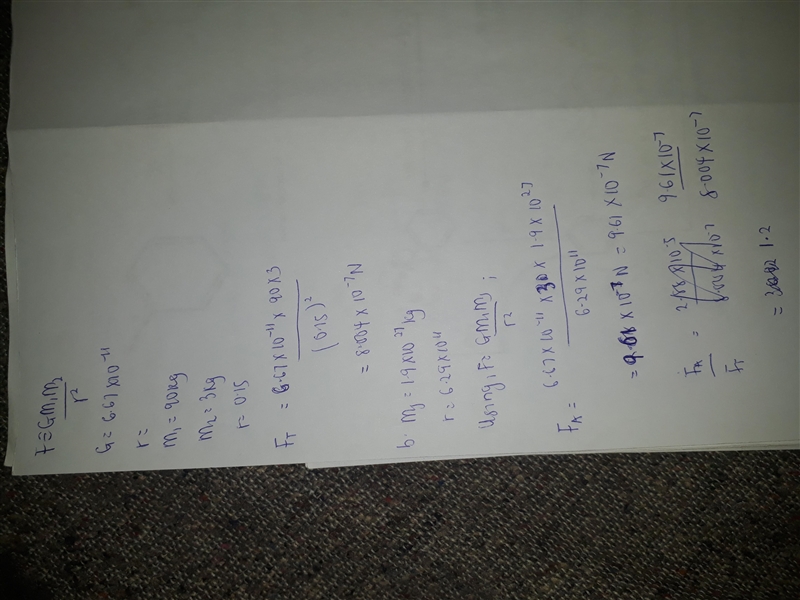 F = Gm₁m₂
r²
G = 6.67 x 10⁻¹¹
r =
m₁ = 90kg
m₂ = 3kg
r = 0.15
F_T = 6.67 x 10⁻¹¹ x 90 x 3
(0.15)²
= 8.004 x 10⁻⁷N
b. mJ = 1.9 x 10²⁷ kg
r = 6.29 x 10¹¹
Using, F = Gm₁mJ ;
r²
F_A = 6.67 x 10⁻¹¹ x 3 x 1.9 x 10²⁷
6.29 x 10¹¹
= x 10⁻⁷ N = 9.61 x 10⁻⁷ N
F_A = 9.61 x 10⁻⁷
F_T 8.004 x 10⁻⁷
= 1.2